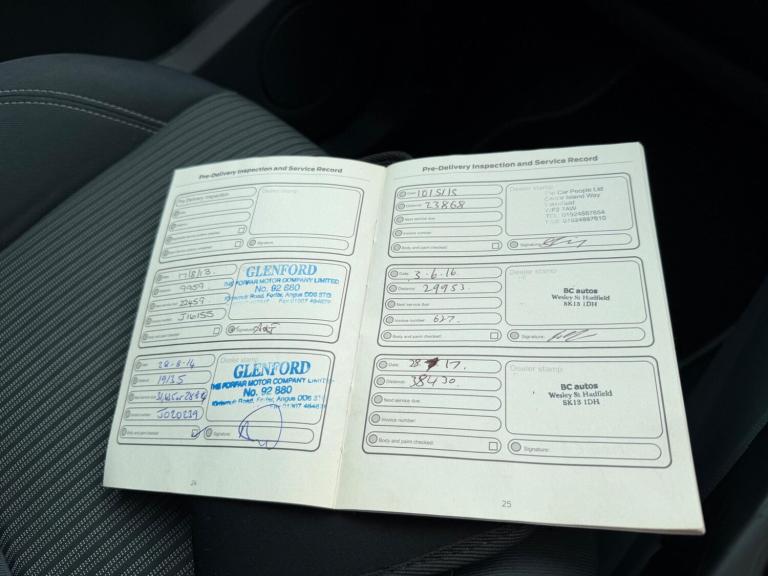 Pre-Delivery Inspection and Service Record
Pre-Delivery Inspection
Dealer stamp
Signature:
17/8/13.
9959
22459
J16155
Body and paint checked
Signature:
GLENFORD
THE FORFAR MOTOR COMPANY LIMITED
No. 92 880
Road, Forfar, Angus DD8
Date:
28-8-14
19135
J020239
Body and paint checked
Dealer stamp
GLENFORD
THE FORFAR MOTOR COMPANY LIMITED
No. 92 880
Road, Forfar, Angus DD8
Signature:
24
Pre-Delivery Inspection and Service Record
Date:
10/5/15
Distance:
23868
Next service due:
Invoice number:
Body and paint checked:
Dealer stamp
The Car People Ltd
Island Way
Wakefield
WF2 7AW
Signature:
Date:
3.6.16.
Distance:
29953.
Next service due:
Invoice number:
627.
Body and paint checked:
Dealer stamp
BC autos
Wesley St Hadfield
SK13 1DH
Signature:
Date:
28 17.
Distance:
38430.
Next service due:
Invoice number:
Body and paint checked:
Dealer stamp
BC autos
Wesley St Hadfield
SK13 1DH
Signature:
25